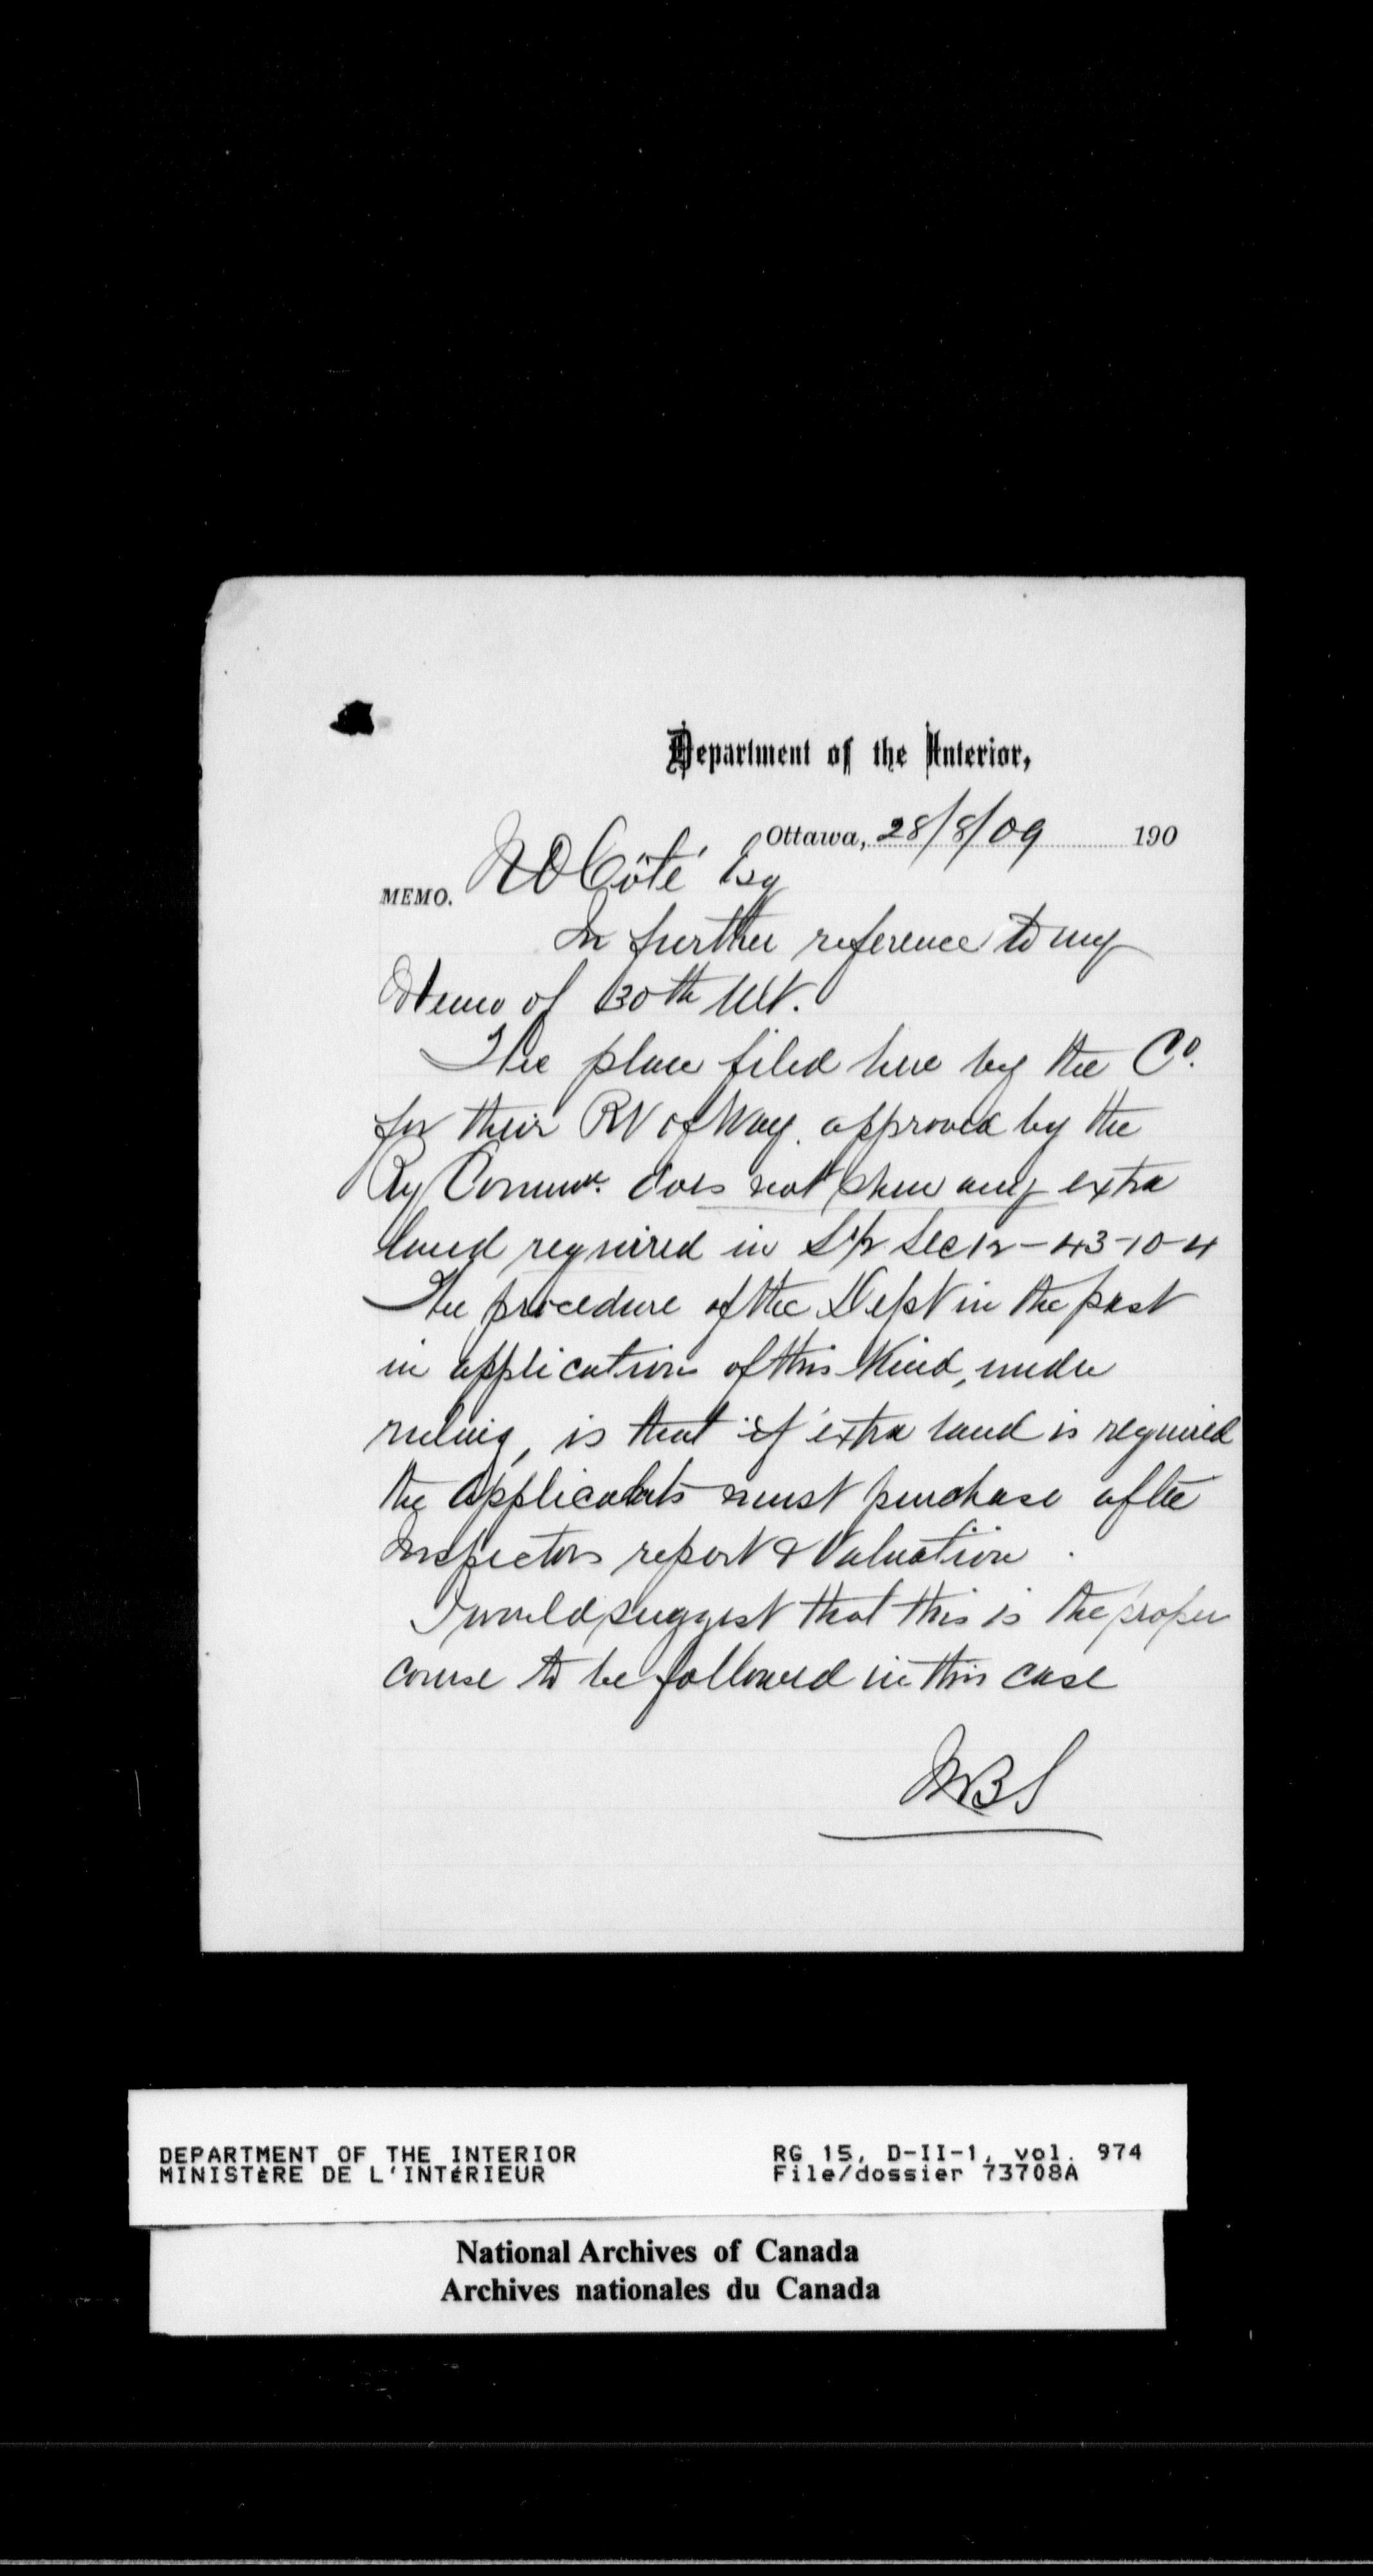 Department of the Interior,
Ottawa, 28/8/09 190
MEMO. N O Côté Esq
In further reference to my
Memo of 30th Ult.
The plan filed here by the Co.
for their Rt of Way approved by the
Ry Commrs. does not shew any extra
land required in S½ Sec 12-43-10-4
The procedure of the Dept in the past
in application of this kind, under
ruling, is that if extra land is required
the applicants must purchase after
Inspectors report & Valuation.
I would suggest that this is the proper
course to be followed in this case
DEPARTMENT OF THE INTERIOR
MINISTÈRE DE L'INTÉRIEUR
RG 15, D-II-1, vol. 974
File/dossier 73708A
National Archives of Canada
Archives nationales du Canada